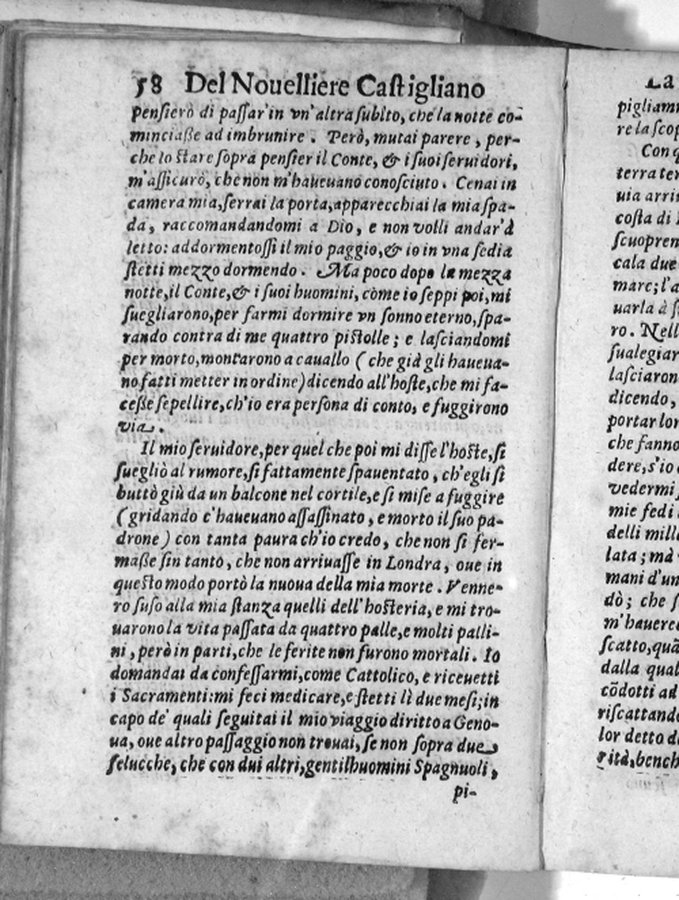 58 Del Nouelliere Castigliano
pensierò di passar'in vn'altra subìto, che la notte co-
minciaße ad imbrunire. Però, mutai parere, per-
che lo stare sopra pensier il Conte, & i suoi seruidori,
m'assicurò, che non m'haueuano conosciuto. Cenai in
camera mia, serrai la porta, apparecchiai la mia spa-
da, raccomandandomi a Dio, e non volli andar'à
letto: addormentossi il mio paggio, & io in vna sedia
stetti mezzo dormendo. Ma poco dopo la mezza
notte, il Conte, & i suoi huomini, còme io seppi poi, mi
suegliarono, per farmi dormire vn sonno eterno, spa-
rando contra di me quattro pistolle; e lasciandomi
per morto, montarono a cauallo (che già gli haueua-
no fatti metter in ordine) dicendo all'hoste, che mi fa-
ceße sepellire, ch'io era persona di conto, e fuggirono
via.
Il mio seruidore, per quel che poi mi disse l'hoste, si
suegliò al rumore, sì fattamente spauentato, ch'egli si
buttò giù da un balcone nel cortile, e si mise a fuggire
(gridando c'haueuano assassinato, e morto il suo pa-
drone) con tanta paura ch'io credo, che non si fer-
maße sin tanto, che non arriuasse in Londra, oue in
questo modo portò la nuoua della mia morte. Venne-
ro suso alla mia stanza quelli dell'hosteria, e mi tro-
uarono la vita passata da quattro palle, e molti palli-
ni, però in parti, che le ferite non furono mortali. Io
domandai da confessarmi, come Cattolico, e riceuetti
i Sacramenti: mi feci medicare, e stetti lì due mesi; in
capo de' quali seguitai il mio viaggio diritto a Geno-
ua, oue altro passaggio non trouai, se non sopra due
felucche, che con dui altri, gentilhuomini Spagnuoli,
pi-
La
pigliamm
re la scop
Con q
terra ter
uia arri
costa di
scuopren
cala due
marc; l'a
uarla à s
ro. Nell
sualegiar
lasciaron
dicendo,
portar lor
che fanno
dere, s'io
vedermi
mie fedi
delli mill
lata; mà
mani d'un
dò; che s
m'hauere
scatto, quã
dalla qual
cõdotti ad
riscattando
lor detto d
rità, bench